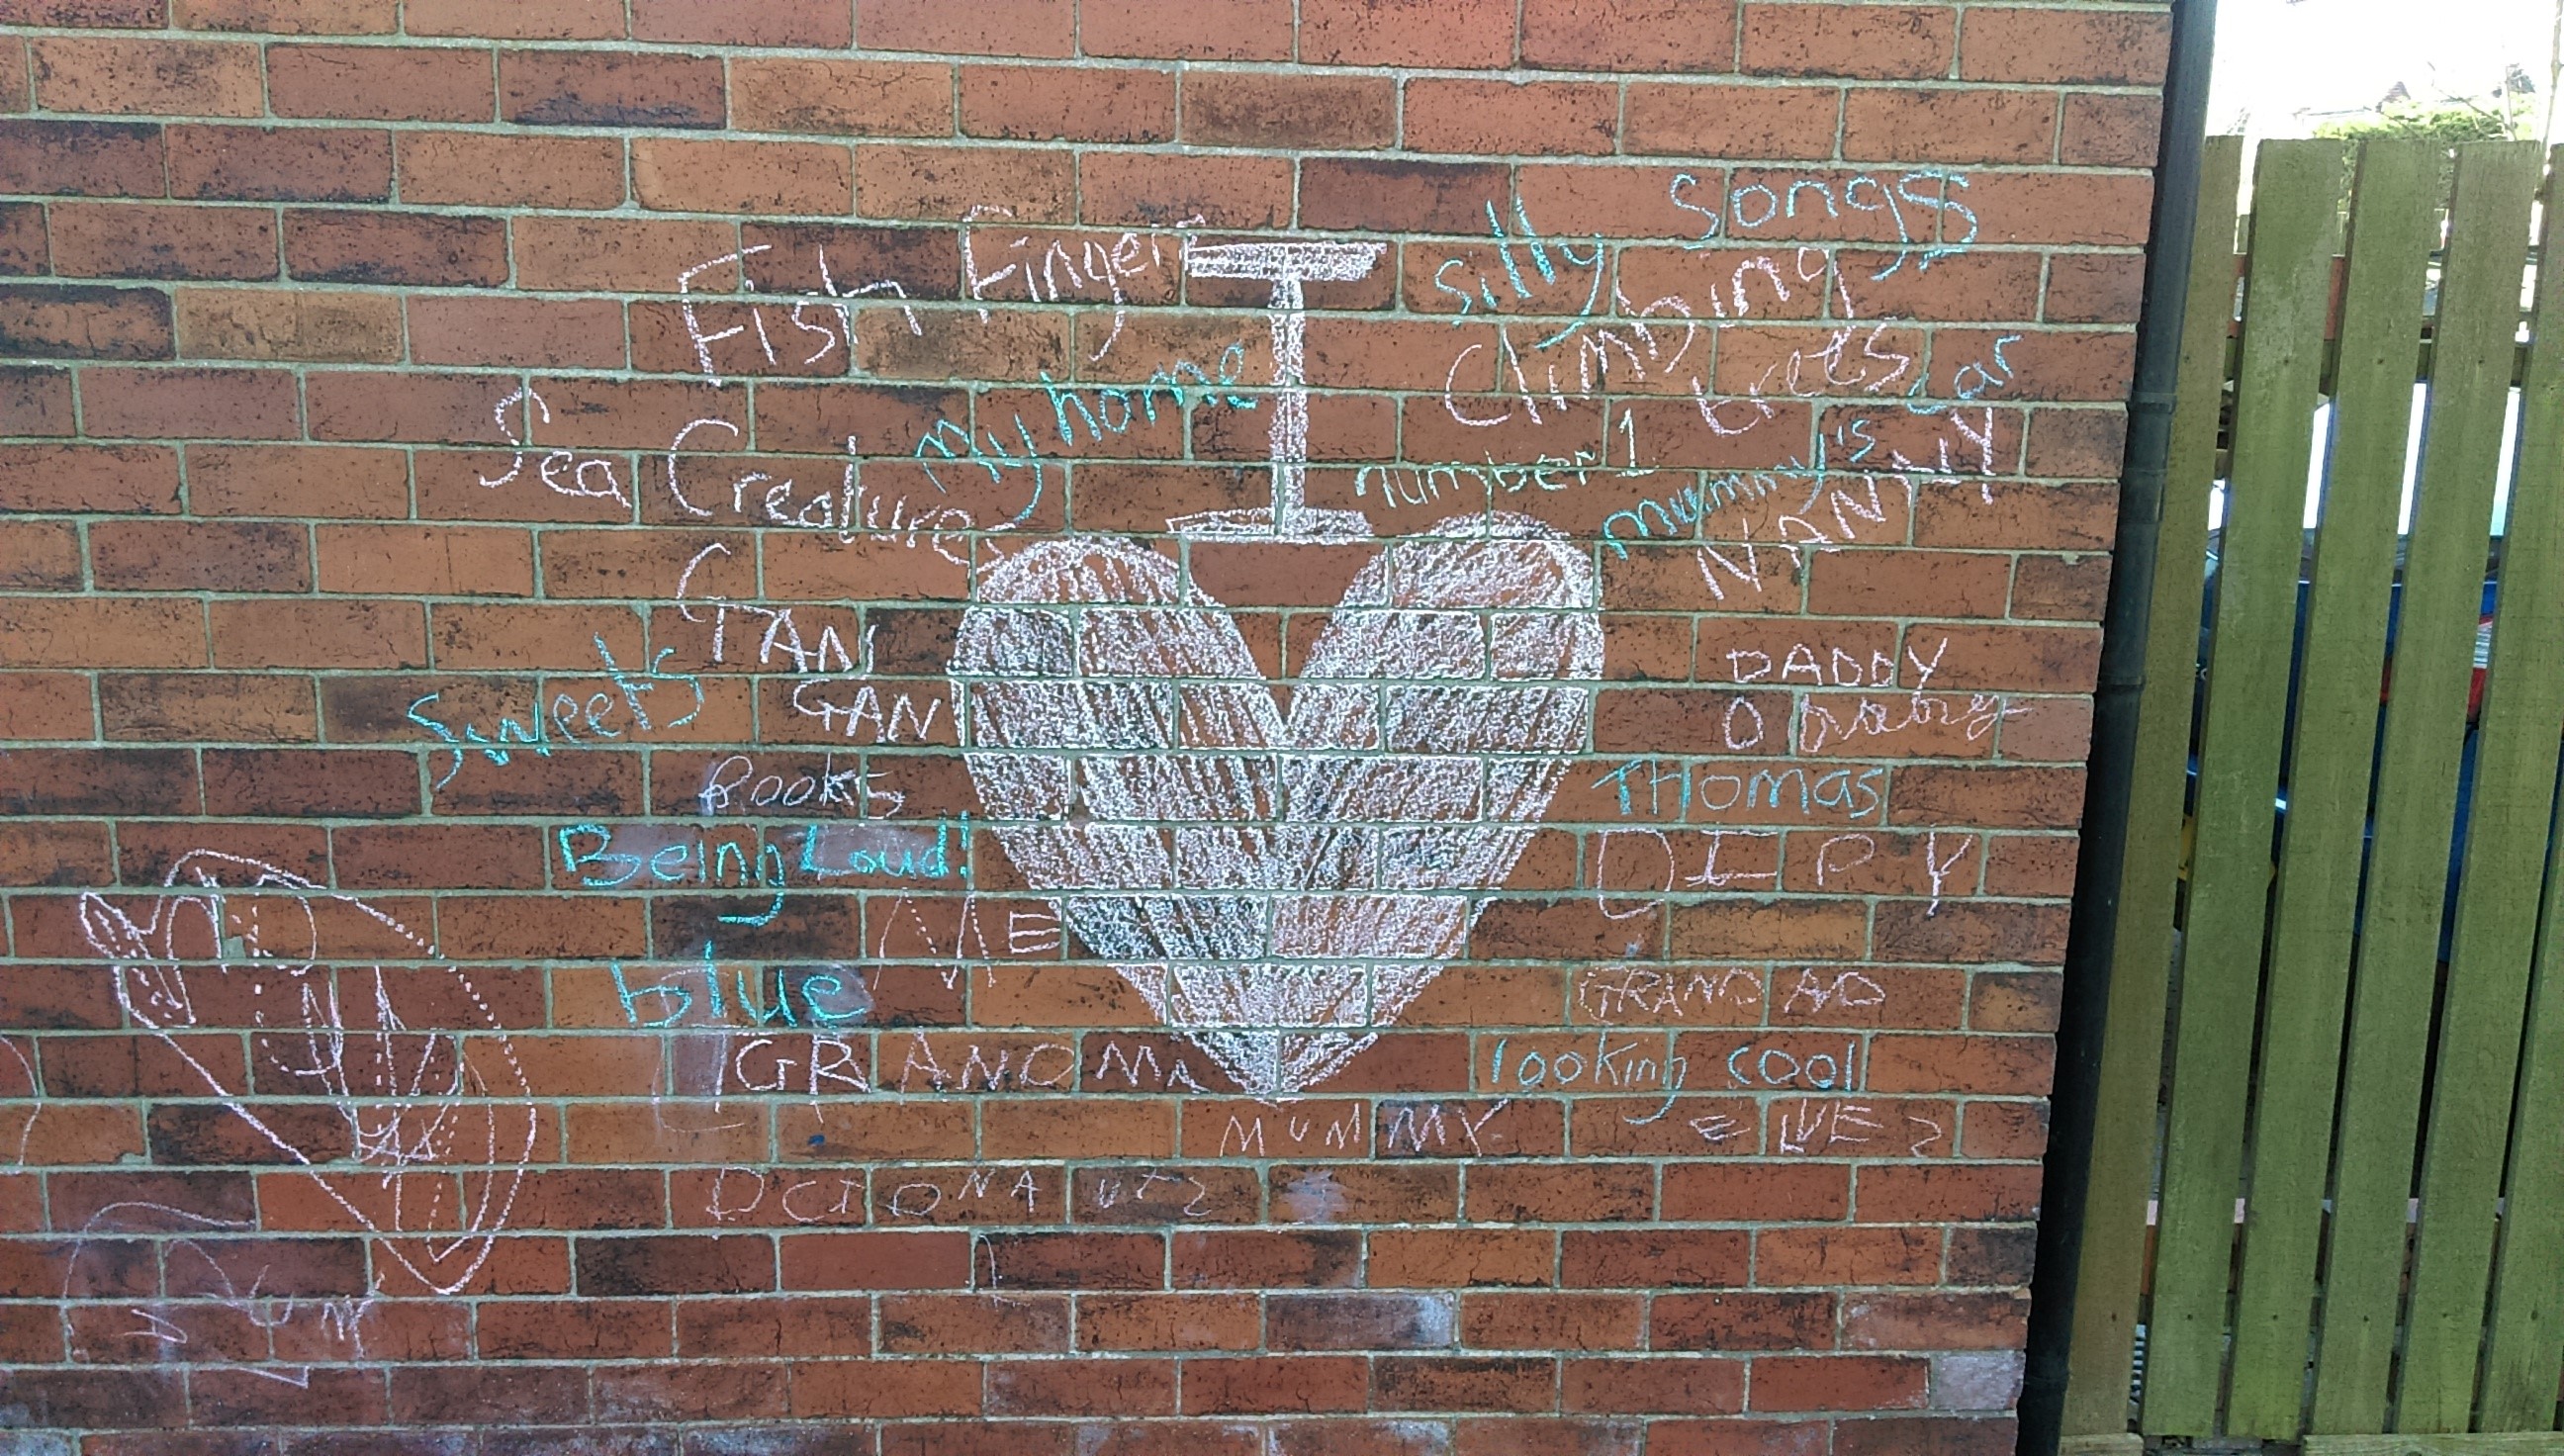 silly songs
Fish Fingers
I
Climbing trees
my home
mummy's car
Sea Creatures
number 1
NANNY
GAN GAN
Sweets
DADDY
Books
THomas
Being Loud!
DIPY
ME
blue
GRANDAD
GRANDMA
looking cool
MUMMY
OCTONAUTS